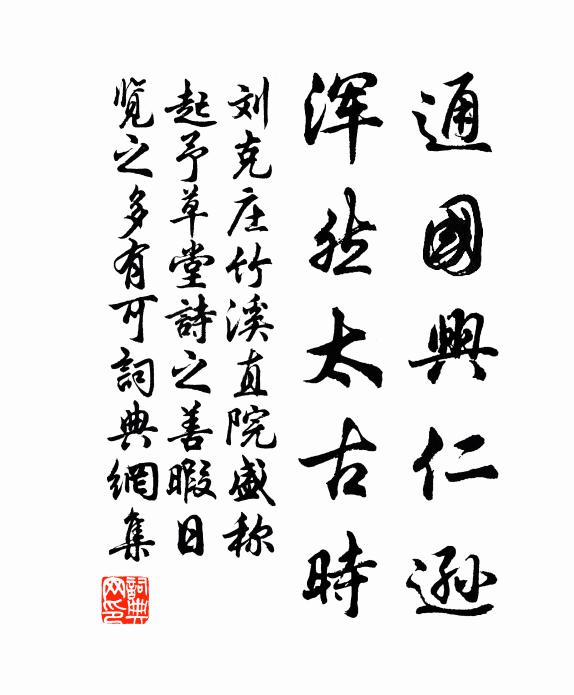 通國興仁遜
渾然太古時
刘克庄竹溪直院盛称
起予草堂詩之善暇日
覽之多有可詞典網集
詞典
网印